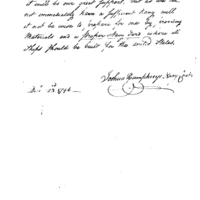 it will be our great support, but as we can
not immediately have a sufficient Navy will
it not be wise to prepare for one by, providing
Materials and a proper Navy Yard where all
Ships should be built for the united States.
Joshua Humphreys
1794